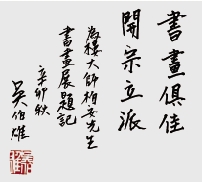 書畫俱佳
開宗立派
為樓大師柏安先生
書畫展題記
辛卯秋
吳伯雄